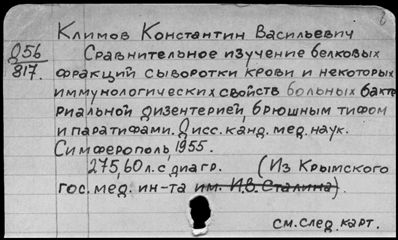 Климов Константин Васильевич
Д56
817.
Сравнительное изучение белковых
фракций сыворотки крови и некоторых
иммунологических свойств больных бакте
риальной дизентерией, брюшным тифом
и паратифами. Дисс. канд. мед. наук.
Симферополь, 1955.
275,60 л. с диагр. (Из Крымского
гос. мед. ин-та им. И.В. Сталина).
см. след. карт.